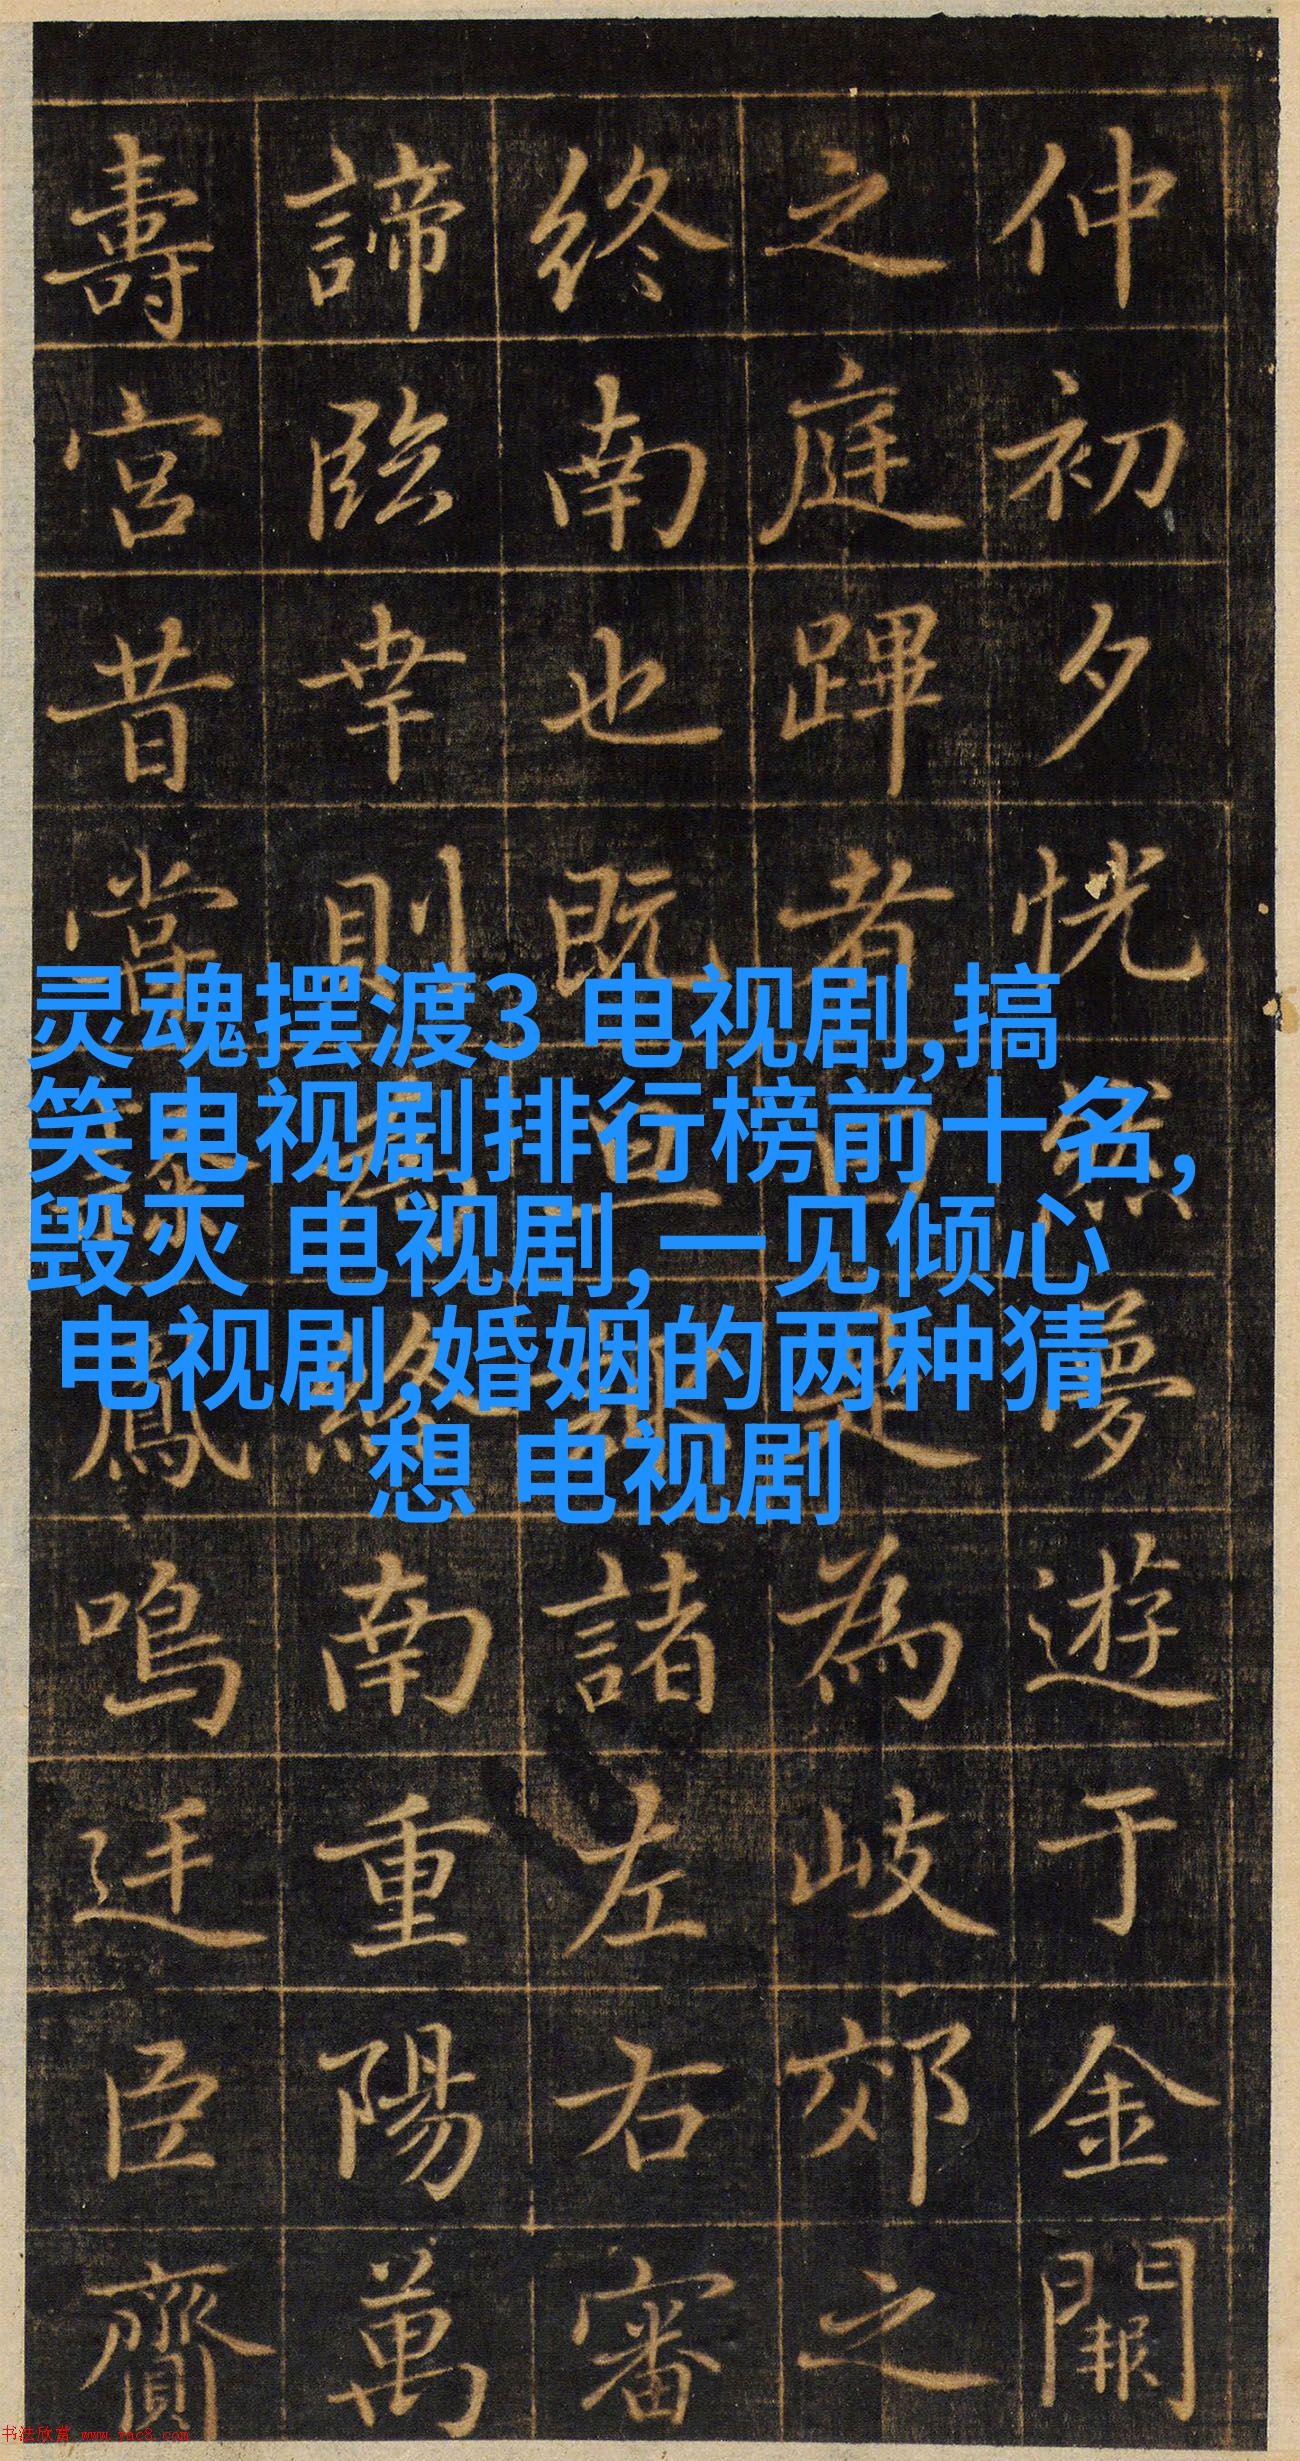 仲初夕恍然夢遊于金闕
之庭蹕者曰是為岐郊之
終南也既旦諸左右審
諦臨幸則終南重陽萬
壽宮昔嘗鳳鳴廷臣齎
灵魂摆渡3 电视剧,搞
笑电视剧排行榜前十名,
毁灭 电视剧,一见倾心
电视剧,婚姻的两种猜
想 电视剧
书法欣赏 www.yac8.com